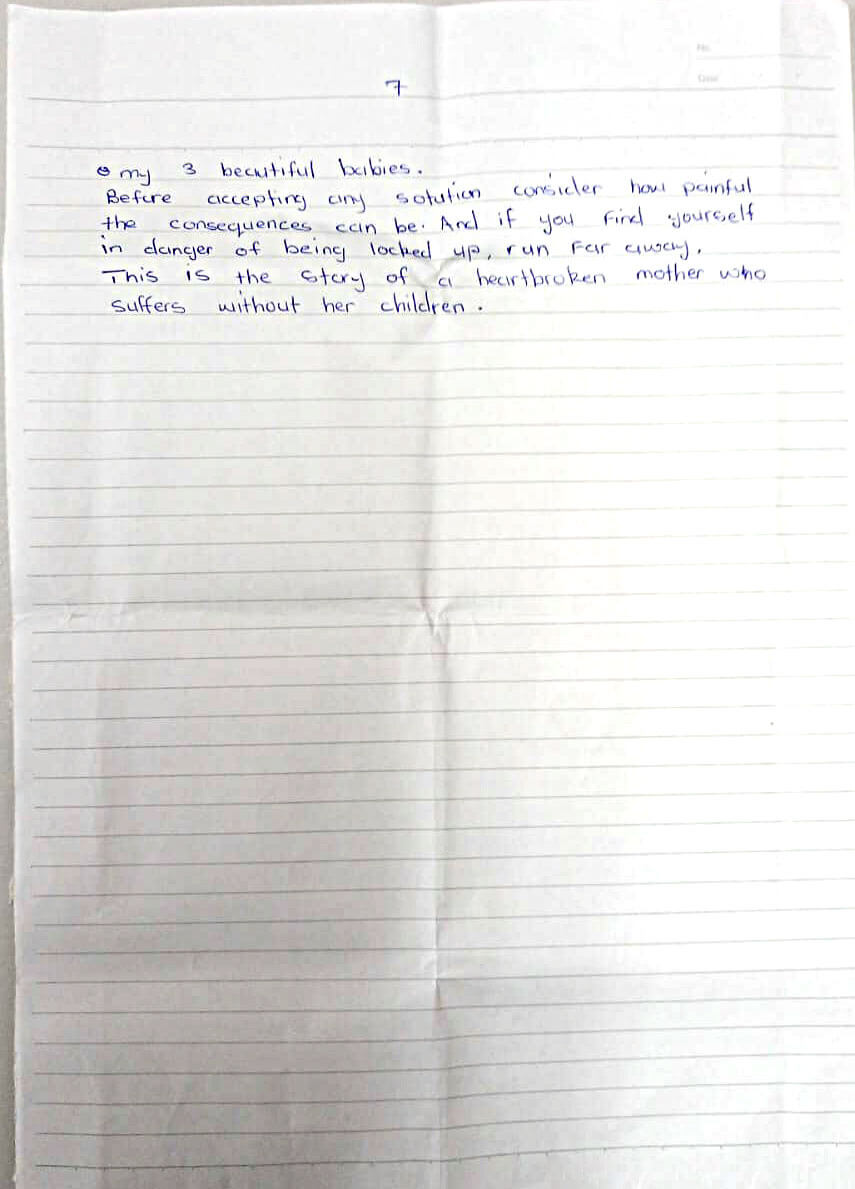 No.
Date
7
my 3 beautiful babies.
Before accepting any solution consider how painful
the consequences can be. And if you find yourself
in danger of being locked up, run far away.
This is the story of a heartbroken mother who
suffers without her children.